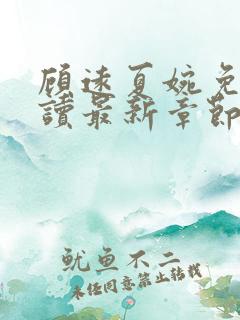 顾远夏婉免
读最新章节
鱿鱼不二
未经同意禁止转载